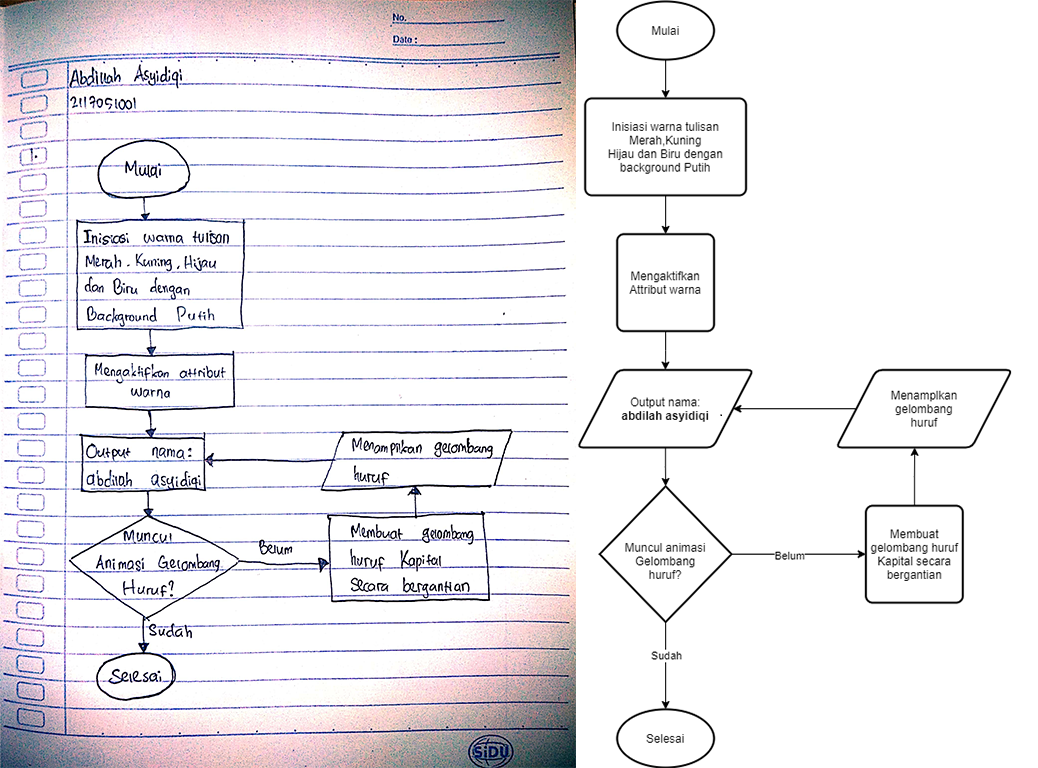 No.
Date :
Abdillah Asyidiqi
2117051001
1.
Mulai
Inisiasi warna tulisan
Merah. Kuning, Hijau
dan Biru dengan
Background Putih
Mengaktifkan attribut
warna
Output nama:
abdilah asyidiqi
Menampilkan gelombang
huruf
Muncul
Animasi Gelombang
Huruf?
Belum
Membuat gelombang
huruf Kapital
secara bergantian
Sudah
Selesai
SiDU
Mulai
Inisiasi warna tulisan
Merah,Kuning
Hijau dan Biru dengan
background Putih
Mengaktifkan
Attribut warna
Output nama:
abdilah asyidiqi
Menamplkan
gelombang
huruf
Muncul animasi
Gelombang
huruf?
Belum
Membuat
gelombang huruf
Kapital secara
bergantian
Sudah
Selesai